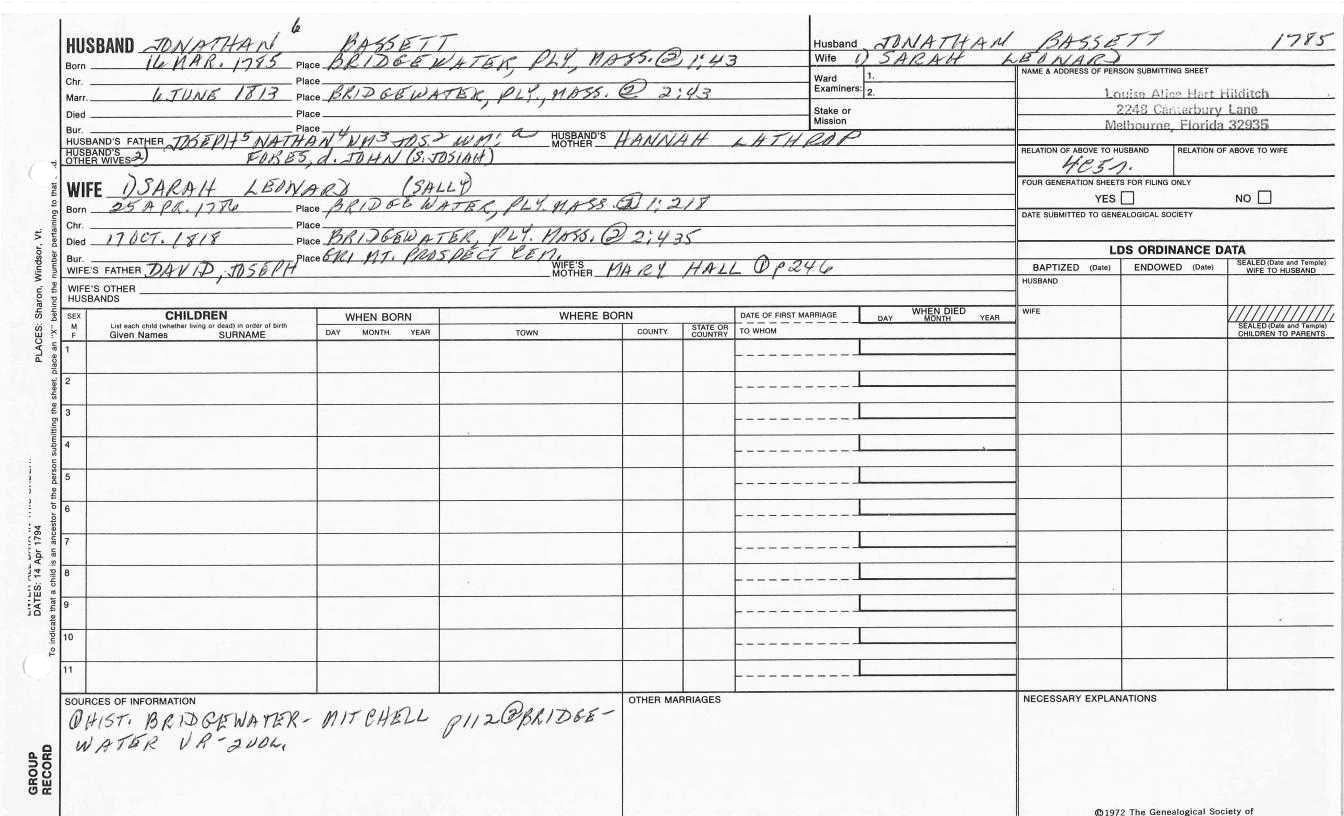 HUSBAND JONATHAN 6 BASSETT
Born 16 MAR. 1785 Place BRIDGEWATER, PLY, MASS. ② 1:43
Chr. Place
Marr. 6 JUNE 1813 Place BRIDGEWATER, PLY., MASS. ② 2:43
Died Place
Bur. Place
HUSBAND'S FATHER JOSEPH5 NATHAN4 WM3 JOS2 WM1 a HUSBAND'S MOTHER HANNAH LATHROP
HUSBAND'S OTHER WIVES 2) FOBES, d. JOHN (S. JOSIAH)
WIFE 1) SARAH LEONARD (SALLY)
Born 25 APR. 1786 Place BRIDGEWATER, PLY. MASS. ② 1:218
Chr. Place
Died 17 OCT. 1818 Place BRIDGEWATER, PLY. MASS. ② 2:435
Bur. Place GR1 MT. PROSPECT CEM.
WIFE'S FATHER DAVID, JOSEPH WIFE'S MOTHER MARY HALL ① p246
WIFE'S OTHER HUSBANDS
Husband JONATHAN BASSETT 1785
Wife 1) SARAH LEONARD
Ward Examiners: 1.
2.
Stake or Mission
NAME & ADDRESS OF PERSON SUBMITTING SHEET
Louise Alice Hart Hilditch
2248 Canterbury Lane
Melbourne, Florida 32935
RELATION OF ABOVE TO HUSBAND RELATION OF ABOVE TO WIFE
4C5r.
FOUR GENERATION SHEETS FOR FILING ONLY
YES NO
DATE SUBMITTED TO GENEALOGICAL SOCIETY
LDS ORDINANCE DATA
BAPTIZED (Date) ENDOWED (Date) SEALED (Date and Temple) WIFE TO HUSBAND
HUSBAND
WIFE
SEALED (Date and Temple) CHILDREN TO PARENTS
SEX M F
CHILDREN
List each child (whether living or dead) in order of birth
Given Names SURNAME
WHEN BORN
DAY MONTH YEAR
WHERE BORN
TOWN COUNTY STATE OR COUNTRY
DATE OF FIRST MARRIAGE
TO WHOM
WHEN DIED
DAY MONTH YEAR
1
2
3
4
5
6
7
8
9
10
11
SOURCES OF INFORMATION
① HIST. BRIDGEWATER - MITCHELL p112 ② BRIDGE-
WATER VR - 2 VOL.
OTHER MARRIAGES
NECESSARY EXPLANATIONS
©1972 The Genealogical Society of
PLACES: Sharon, Windsor, Vt.
DATES: 14 Apr 1794
To indicate that a child is an ancestor of the person submitting the sheet, place an "X" behind the number pertaining to that
GROUP
RECORD